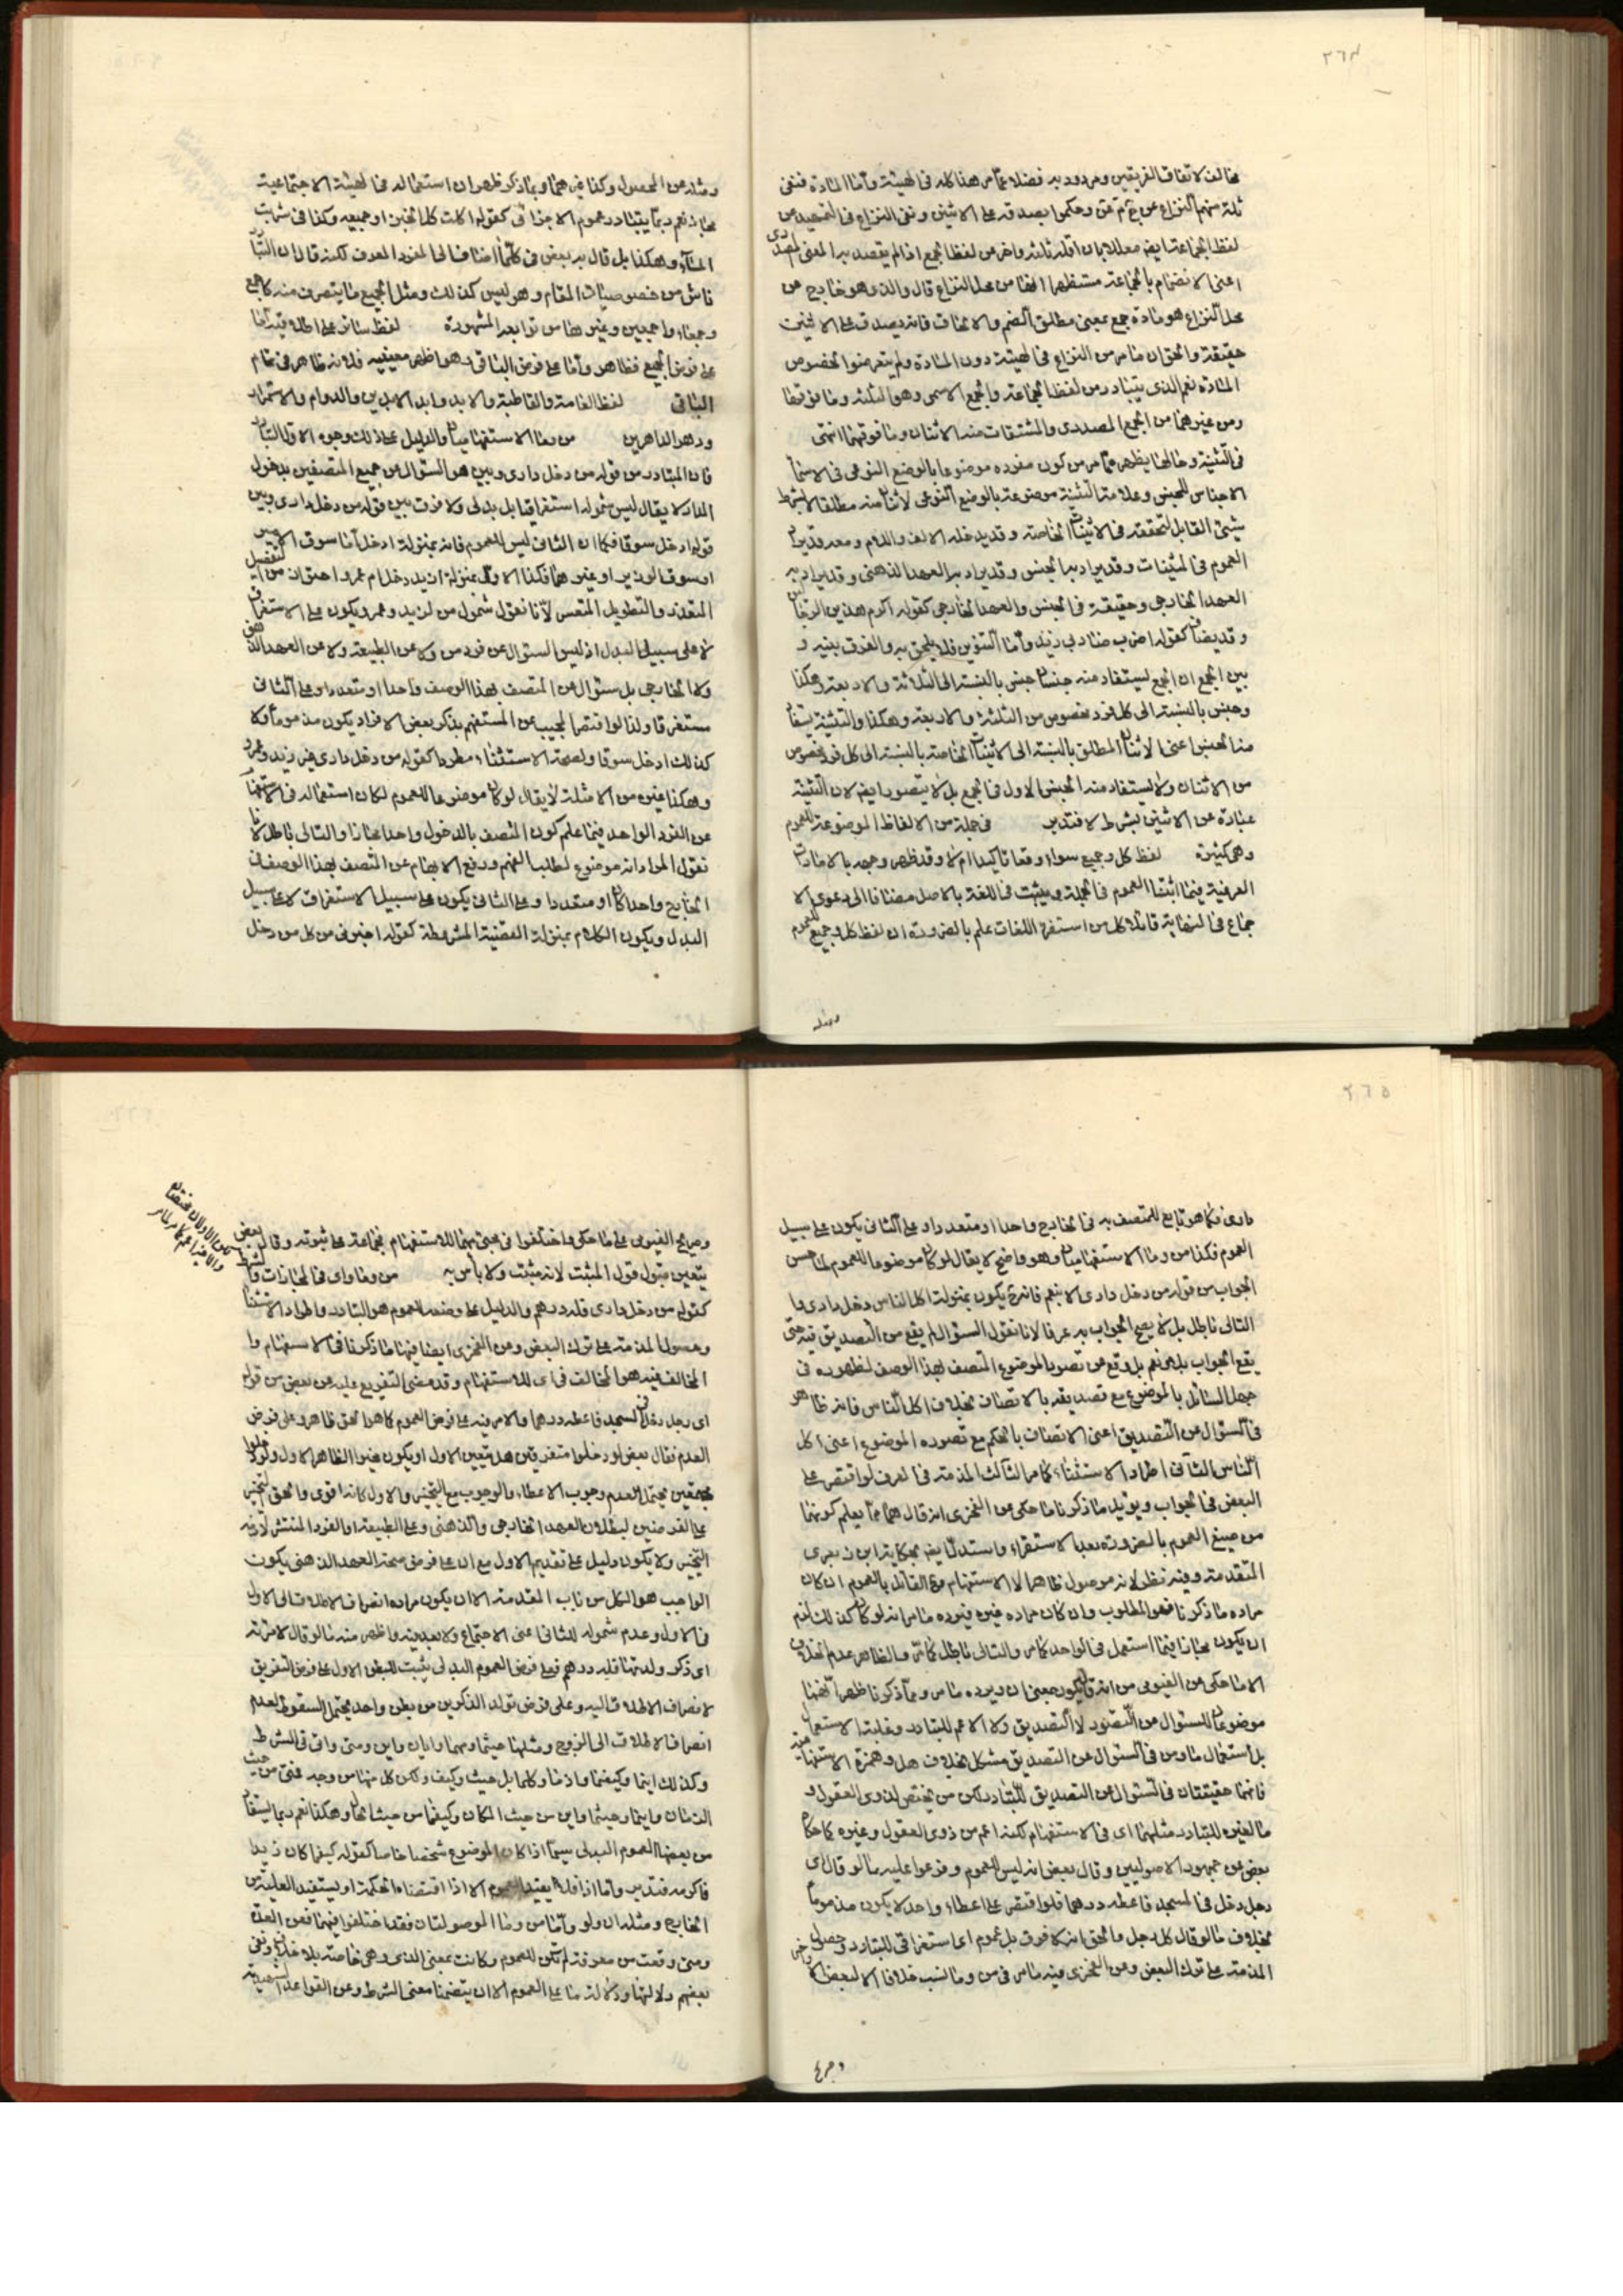 ٢٦٤
مخالف لاتفاق الفريقين ومردود به فضلا عما مر هذا كله في الهيئة وأما المادة فنفى
ثلة منهم النزاع عن ج م ع وحكموا بصدقه على الاثنين ونفى النزاع في التمهيد عن
لفظ الجماعة ايضا معللا بان اقله ثلثة واخر من لفظ الجمع اذا لم يقصد به المعنى المصدرى
اعنى الانضمام بالجماعة مستظهرا انها من محل النزاع قال والذى هو خارج عن
محل النزاع هو مادة جمع بمعنى مطلق الضم والالحاق فانه يصدق على الاثنين
حقيقة والحق ان ما مر من النزاع في الهيئة دون المادة ولم يتعرضوا لخصوص
المادة نعم الذى يتبادر من لفظ الجماعة والجمع الاسمى وهو الثلثة وما فوقها
ومن غيرهما من الجمع المصدرى والمشتقات منه الاثنان وما فوقهما انتهى
في التثنية وحالها يظهر مما مر من كون مفرده موضوعا بالوضع النوعى في الاسماء
الاجناس للجنس وعلامة التثنية موضوعة بالوضع النوعى لاثنان منه مطلقا لا بشرط
شيئ القابل لتحققه في الاثنينات الخاصة وقد يدخله الالف واللام ومعه قد يراد
العموم في المثنيات وقد يراد به الجنس وقد يراد به العهد الذهنى وقد يراد به
العهد الخارجى وحقيقة في الجنس والعهد الخارجى كقوله اكرم هذين الرجلين
وقد يضاف كقوله اضرب ضاربى زيد وأما التنوين فلا يلحق به والفرق بينه و
بين الجمع ان الجمع يستفاد منه جنسان جنس بالنسبة الى الثلاثة والاربعة وهكذا
وجنس بالنسبة الى كل فرد مخصوص من الثلثة والاربعة وهكذا والتثنية يستفاد
منه الجنس اعنى الاثنان المطلق بالنسبة الى الاثنينات الخاصة بالنسبة الى كل فرد مخصوص
من الاثنان ولا يستفاد منه الجنس الاول في الجمع بل لا يتصور ايضا لان التثنية
عبارة عن الاثنين بشرط لا فتدبر في جملة من الالفاظ الموضوعة للعموم
وهى كثيرة لفظ كل وجميع سواء وقعا تاكيدا ام لا وقد ظهر وجهه بالامارات
العرفية فيما اثبتنا العموم في الجملة ويثبت في اللغة بالاصل مضافا الى دعوى الا
جماع في النهاية قائلا كل من استقرء اللغات علم بالضرورة ان لفظ كل وجميع للعموم
ومثله
ومثله عن المحصول وكذا غيرهما وبما ذكر ظهر ان استعماله في الهيئة الاجتماعية
مجاز نعم ربما يتبادر عموم الاجزائى كقوله اكلت كل الخبز او جميعه وكذا في شربت
الماء وهكذا بل قال به بعض في كلما اضافا الى المفرد المعرف لكنه قال ان التبادر
ناش من خصوصيات المقام وهو ليس كذلك ومثل الجميع ما يتصرف منه كاجمع
وجمعاء واجمعين وغيرها من توابعه المشهورة لفظ سائر على اطلاقيه أما
على فرض الجميع فظاهر وأما على فرض الباقى وهو اظهر معنييه فلانه ظاهر في تمام
الباقى لفظ العامة والقاطبة والابد وابد الابدين والدوام والاستمرار
ودهر الداهرين من وما الاستفهاميتان والدليل على ذلك وجوه الاول التبادر
فان المتبادر من قوله من دخل دارى وبين هو السؤال عن جميع المتصفين بدخول
الدار لا يقال ليس شموله استغراقيا بل بدلى ولا فرق بين قوله من دخل دارى وبين
قوله ادخل سوقا فكما ان الثانى ليس للعموم فانه بمنزلة ادخل أما سوق الامير
او سوق الوزير او غيرهما فكذا الاول بمنزلة ازيد دخل ام عمرو احترازا من التفصيل
المتعذر والتطويل المتعسر لأنا نقول شمول من لزيد وعمرو يكون على الاستغراق
لا على سبيل البدل اذ ليس السؤال عن فرد من ولا عن الطبيعة ولا عن العهد الذهنى
ولا الخارجى بل سئوال عن المتصف بهذا الوصف واحدا او متعددا وعلى الثانى
مستغرقا ولذا لو اقتصر المجيب عن المستفهم بذكر بعض الافراد يكون مذموما ولا
كذلك ادخل سوقا ولصحة الاستثناء مطردا كقوله من دخل دارى غير زيد وعمرو
وهكذا غيره من الامثلة لا يقال لو كان موضوعا للعموم لكان استعماله في الاستفهام
عن الفرد الواحد فيما علم كون المتصف بالدخول واحدا مجازا والتالى باطل لانا
نقول المراد انه موضوع لطلب الفهم ورفع الابهام عن المتصف بهذا الوصف في
الخارج واحدا كان او متعددا وعلى الثانى يكون على سبيل الاستغراق لا على سبيل
البدل ويكون الكلام بمنزلة القضية المشروطة كقوله اخبرنى من كل من دخل
٢٦٥
دارى فكما هو تابع للمتصف به في الخارج واحدا او متعددا وعلى الثانى يكون على سبيل
العموم فكذا من وما الاستفهاميتان وهو واضح لا يقال لو كان موضوعا للعموم لما حسن
الجواب من قوله من دخل دارى الا بنعم فانه ح يكون بمنزلة اكل الناس دخل دارى وا
التالى باطل بل لا يصح الجواب به عرفا لانا نقول السؤال لم يقع من التصديق فيه حتى
يقع الجواب بلا ونعم بل وقع عن تصور الموضوع المتصف بهذا الوصف لظهوره في
جهل السائل بالموضوع مع تصديقه بالاتصاف بخلاف اكل الناس فانه ظاهر
في السؤال عن التصديق اعنى الاتصاف بالحكم مع تصوره الموضوع اعنى اكل
الناس الثانى اطراد الاستثناء كما مر الثالث المذمة في العرف لو اقتصر على
البعض في الجواب ويؤيد ما ذكرنا ما حكى عن الفخرى انه قال هما مما يعلم كونهما
من صيغ العموم بالضرورة بعد الاستقراء واستدل ايضا بحكاية ابن زبعرى
المتقدمة وفيه نظر لانه موصول ظاهرا لا الاستفهام وح القائل بالعموم ان كان
مراده ما ذكرنا فهو المطلوب وان كان مراده غيره فيرده ما مر انه لو كان كذلك لزم
ان يكون مجازا فيما استعمل في الواحد كما مر والتالى باطل كما مر والظاهر عدم الخلاف
الا ما حكى عن الفيومى من انه قد يكون بمعنى ان ويرده ما مر ومما ذكرنا ظهر انهما
موضوعان للسئوال من التصور لا التصديق ولا الاعم للتبادر وغلبة الاستعمال
بل استعمال ما ومن في السئوال عن التصديق مشكل بخلاف هل وهمزة الاستفهامية
فانهما حقيقتان في السئوال عن التصديق للتبادر لكن من يختص لذوى العقول و
ما لغيره للتبادر مثلهما اى في الاستفهام لكنه اعم من ذوى العقول وغيره كما حكاه
بعض عن جمهور الاصوليين وقال بعض انه ليس للعموم وفرعوا عليه ما لو قال اى
رجل دخل في المسجد فاعطه درهما فلو اقتصر على اعطاء واحد لا يكون مذموما
بخلاف ما لو قال كل رجل والحق انه لا فرق بل عموم اى استغراقى للتبادر وحصول
المذمة على ترك البعض وعن الفخرى فيه ما مر في من وما نسب خلافا الا لبعض
وصرح
وصريح الفيومى على ما حكى واختلفوا في مجئ مهما للاستفهام فجماعة على ثبوته وقال بعض
يتعين قبول قول المثبت لانه مثبت ولا بأس به من وما واى في المجازات والشرط
كقوله من دخل دارى فله درهم والدليل على وضعه للعموم هو التبادر واطراد الاستثناء
وحصول المذمة على ترك البعض وعن الفخرى ايضا فيهما ما ذكرنا في الاستفهام وا
المخالف فيه هو المخالف في اى للاستفهام وقد مضى التفريع عليه عن بعض من قوله
اى رجل دخل في المسجد فاعطه درهما والامر فيه على فرض العموم كما هو الحق ظاهر وعلى فرض
العدم فقال بعض لو دخلوا متفرقين هل يتعين الاول او يكون مخيرا الظاهر الاول ولو دخلوا
مجتمعين يحتمل العدم وجوب الاعطاء والوجوب مع التخيير والاول كانه اقوى والحق التخيير
على الفرضين لبطلان العهد الخارجى والذهنى وعلى الطبيعة او الفرد المنتشر لازمه
التخيير ولا يكون دليل على تقديم الاول مع ان على فرض صحة العهد الذهنى يكون
الواجب هو الكل من باب المقدمة الا ان يكون مراده انصراف الاطلاق الى الاول
في الاول وعدم شموله للثانى اعنى الاجتماع ولا بعد فيه واظهر منه ما لو قال لامرأته
اى ذكر ولدتها فله درهم فعلى فرض العموم البدلى يثبت للبطن الاول على فرض التفريق
لانصراف الاطلاق اليه وعلى فرض تولد الذكرين من بطن واحد يحتمل السقوط لعدم
انصراف الاطلاق الى الزوج ومثلهما حيثما ومهما وايان واين ومتى واى في الشرط
وكذلك اينما وكيفما واذما وكلما بل حيث وكيف ولكن كل منها من وجه فمتى من حيث
الزمان واينما وحيثما واين من حيث المكان وكيفما من حيث الحال وهكذا نعم ربما يستفاد
من بعضها العموم البدلى سيما اذا كان الموضوع شخصا خاصا كقوله كيفما كان زيد
فاكرمه فتدبر وأما اذا فلا يفيد العموم الا اذا اقتضاه الحكمة او يستفيد العلية من
الخارج ومثله ان ولو وأما من وما الموصولتان فقد اختلفوا فيهما فعن العدة
ومتى وقعت من معرفة لم تكن للعموم وكانت بمعنى الذى وهى خاصة بلا خلاف ونفى
بعضهم دلالتها ودلالة ما على العموم الا ان يتضمنا معنى الشرط وعن القواعد الشهيدية